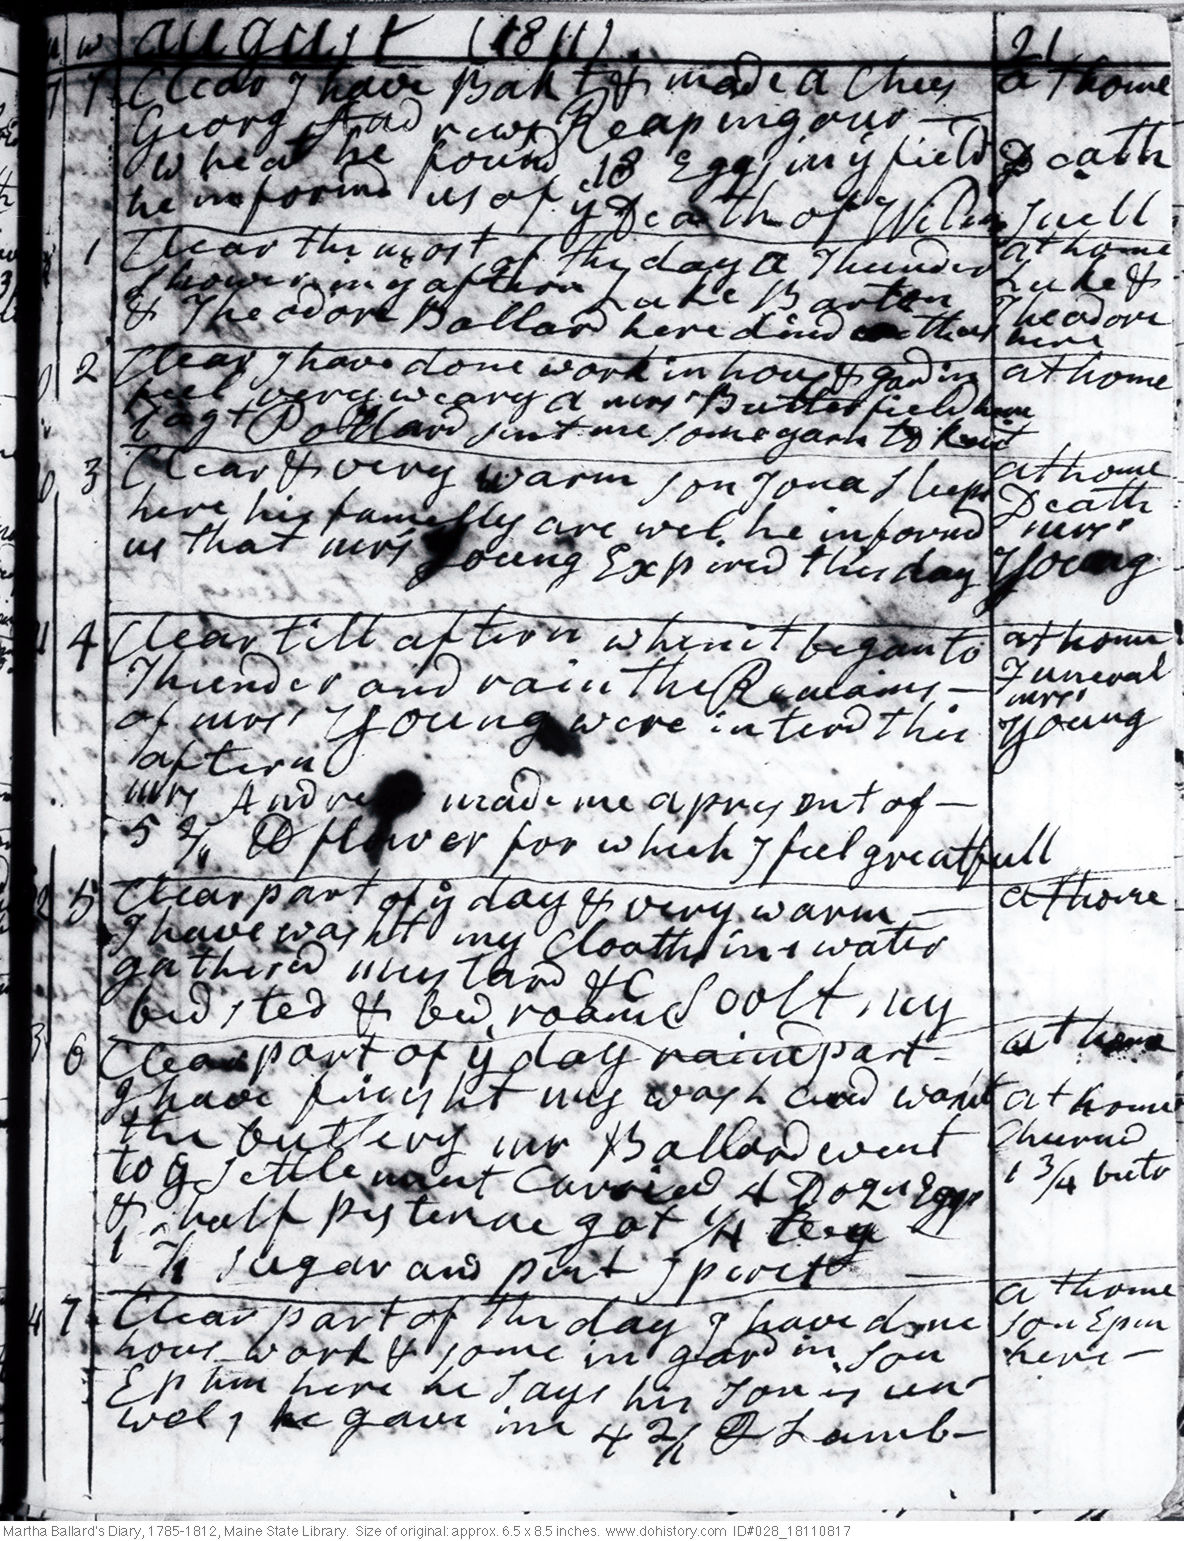 m w august (1811) 21
7 7 Clear I have Bakt & made a Chees at home
Georg Andrews Reaping our —
wheat he found 18 Eggs in ÿ field Death
he informd us of ÿ Death of Wilm Suell
1 Clear the most of the day a Thunder at home
shower in ÿ aftern Luke Barton Luke &
& Theodore Ballard here dind Theodore
here
2 Clear I have done work in hous & gardin at home
feel very weary a mrs Butterfield here
Pollard sent me some yarn to knit
3 Clear & very warm son Jona sleeps at home
here his familly are wel, he informd Death
us that mrs Young Expired this day mrs
Young
4 Clear till aftern when it began to at home
Thunder and rain the Remains — Funeral
of mrs Young were interd this mrs
aftern Young
mrs Andrews made me a present of —
5 2/4 lb flower for which I feel greatfull
5 Clear part of ÿ day & very warm — at home
I have washt my Cloaths in water
gathered mustard &C
bedsted & bed room Scolt my
3 6 Clear part of ÿ day raind part — at home
I have finisht my wash and washt at home
the buttery mr Ballard went churnd
to ÿ settlement Carried 4 Dozn Eggs 1 3/4 butr
& half pisterine got 1/4 teey
1 sugar and pint spirit —
4 7 Clear part of the day I have done at home
hous work & some in gardin. son son Epm
Ephm here he says his son is un- here —
wel, he gave me 4 2/1 lb Lamb —
Martha Ballard's Diary, 1785-1812, Maine State Library. Size of original: approx. 6.5 x 8.5 inches. www.dohistory.com ID#028_18110817